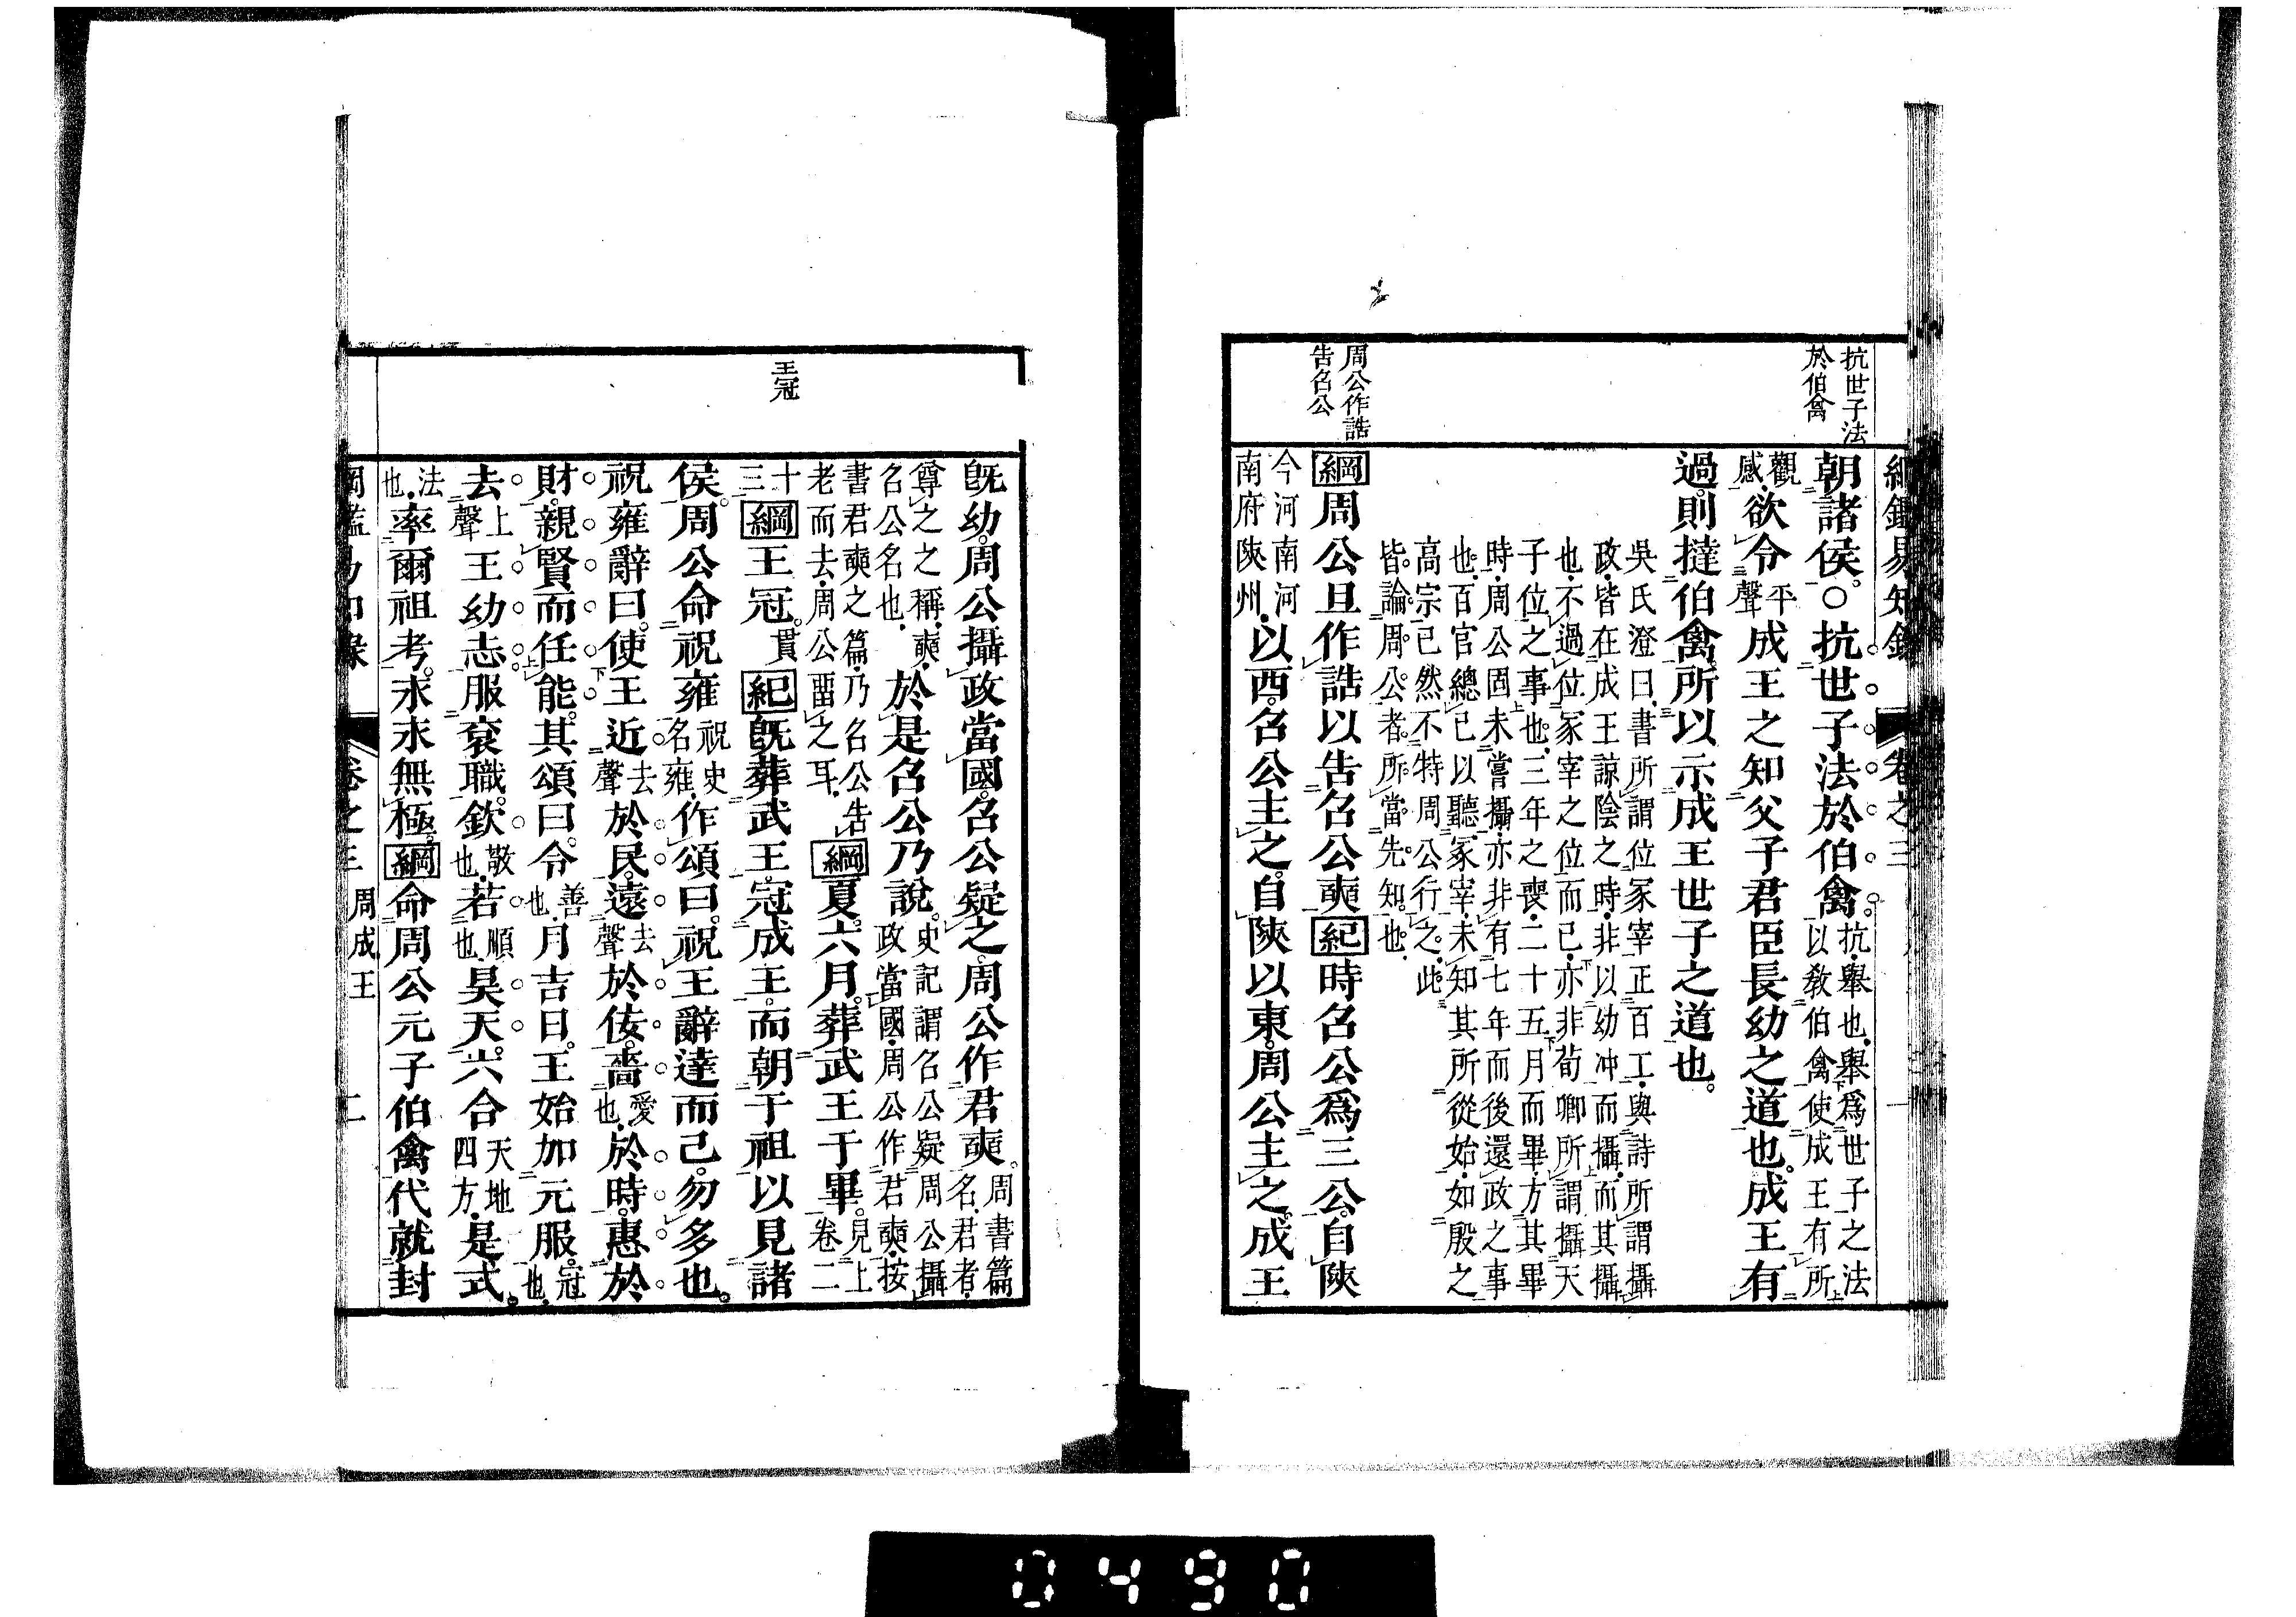 抗世子法
於伯禽
周公作誥
告召公
綱鑑易知錄 卷之三
朝諸侯○抗世子法於伯禽抗舉也舉爲世子之法以敎伯禽使成王有所
觀感欲令平聲成王之知父子君臣長幼之道也成王有
過則撻伯禽所以示成王世子之道也
吳氏澄曰書所謂位冢宰正百工與詩所謂攝
政皆在成王諒陰之時非以幼冲而攝而其攝
也不過位冢宰之位而已亦非荀卿所謂攝天
子位之事也三年之喪二十五月而畢方其畢
時周公固未嘗攝亦非有七年而後還政之事
也百官總已以聽冢宰未知其所從始如殷之
高宗已然不特周公行之此
皆論周公者所當先知也
綱周公旦作誥以告召公奭紀時召公爲三公自陝
今河南河南府陝州以西召公主之自陝以東周公主之成王
王冠
旣幼周公攝政當國召公疑之周公作君奭周書篇名君者
尊之之稱奭召公名也於是召公乃說史記謂召公疑周公攝政當國周公作君奭按
書君奭之篇乃召公告老而去周公畱之耳綱夏六月葬武王于畢見上卷二
十三綱王冠貫紀旣葬武王冠成王而朝于祖以見諸
侯周公命祝雍祝史名雍作頌曰祝王辭達而已勿多也
祝雍辭曰使王近去聲於民遠去聲於佞嗇愛也於時惠於
財親賢而任能其頌曰令善也月吉日王始加元服冠也
去上聲王幼志服袞職欽敬也若順也昊天六合天地四方是式
法也率爾祖考永永無極綱命周公元子伯禽代就封
綱鑑易知錄 卷之三 周成王 二
0490